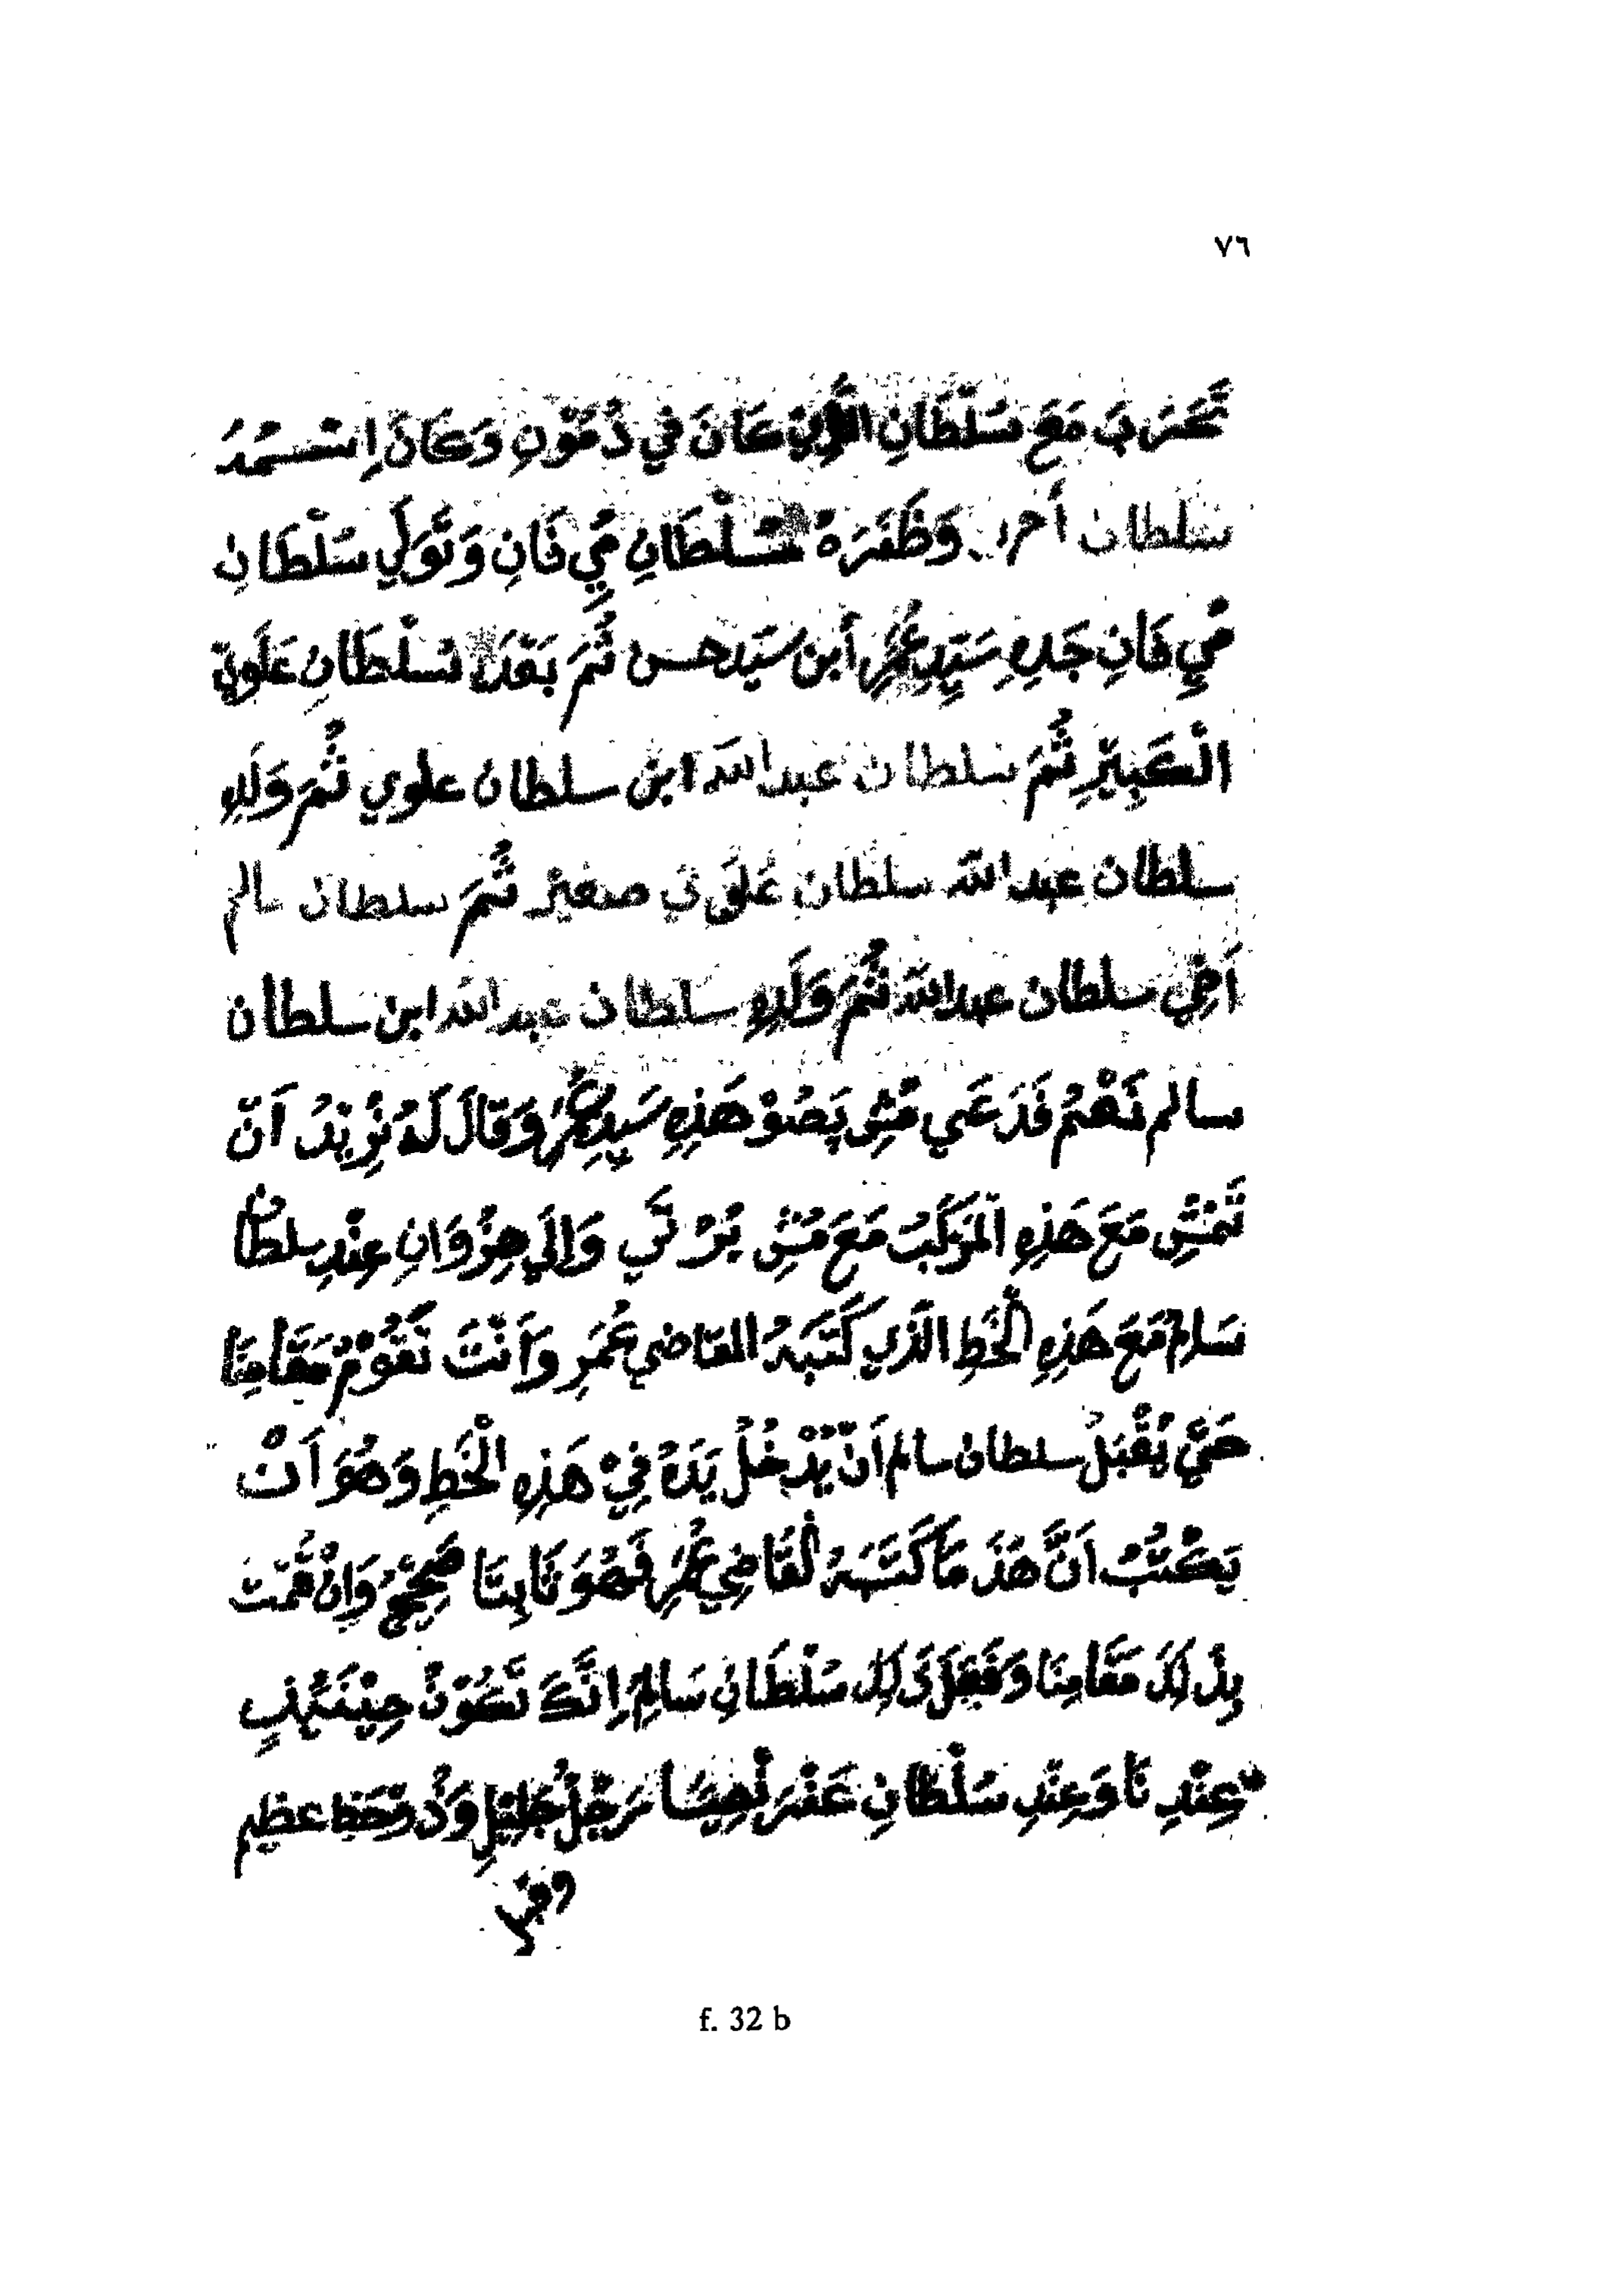 ٧٦
تَحَرَبَ مَعَ سُلْطَانِ الَّذِي كَانَ فِي دُمُوْنِ وَكَانَ اِسْمُهُ
سلطان أحمد وَظَفَرَهُ سُلْطَانِ مِي فَانِ وَتَوَلَي سُلْطَانِ
مِي فَانِ جَدِهِ سَيِّدِ عُمَرْ أبن سَيّد حسن ثُمَ بَعْدَ سُلْطَانِ عَلَوِي
الْكَبِيْرِ ثُمَ سلطان عبد الله ابن سلطان علوي ثُمَ وَلَدِهِ
سلطان عبد الله سلطان عَلَوِي صغيْر ثُمَ سلطان سالم
اَخِي سلطان عبد الله ثُمَ وَلَدِهِ سلطان عبد الله ابن سلطان
سالم نَعَمْ فَدَعَي مُشِ پَصُوْ هَذِهِ سَيِدِ عُمَرْ وَقَالَ لَهُ نُرِيْدُ اَنّ
تَمْشِ مَعَ هَذِهِ الْمَرْكَبُ مَعَ مُشِ بُرْتَي وَاِلَي جِزْوَانِ عِنْدِ سلطان
سَالم مَعَ هَذِهِ الْخَطِ الَّذِي كَتَبَهُ القاضي عُمَرِ وَاَنْتَ تَقُوْمُ مَقَامِنَا
حَتَّي يُقْبَلُ سلطان سالم اَنّ يُدْخُلُ يَدَهُ فِيْ هَذِهِ الْخَطِ وَهُوَ اَنْ
يَكْتُبُ اَنَّ هَذَ مَا كَتَبَهُ الْقَاضِي عُمَرِ فَهُوَ ثَابِتَا صَحِيْحُ وَاِنْ قُمْتَ
بِذَلِكَ مَقَامِنَا وَفَعِلَ ذَلِكَ سُلْطَانِ سَالِمْ اِنَّكَ تَكُوْنُ حِيْنَئِذٍ
عِنْدِنَا وَعِنْدِ سُلْطَانِ رَجُلْ جَلِيْلِ وَذُوحَظِ عظيم
وفي
f. 32 b